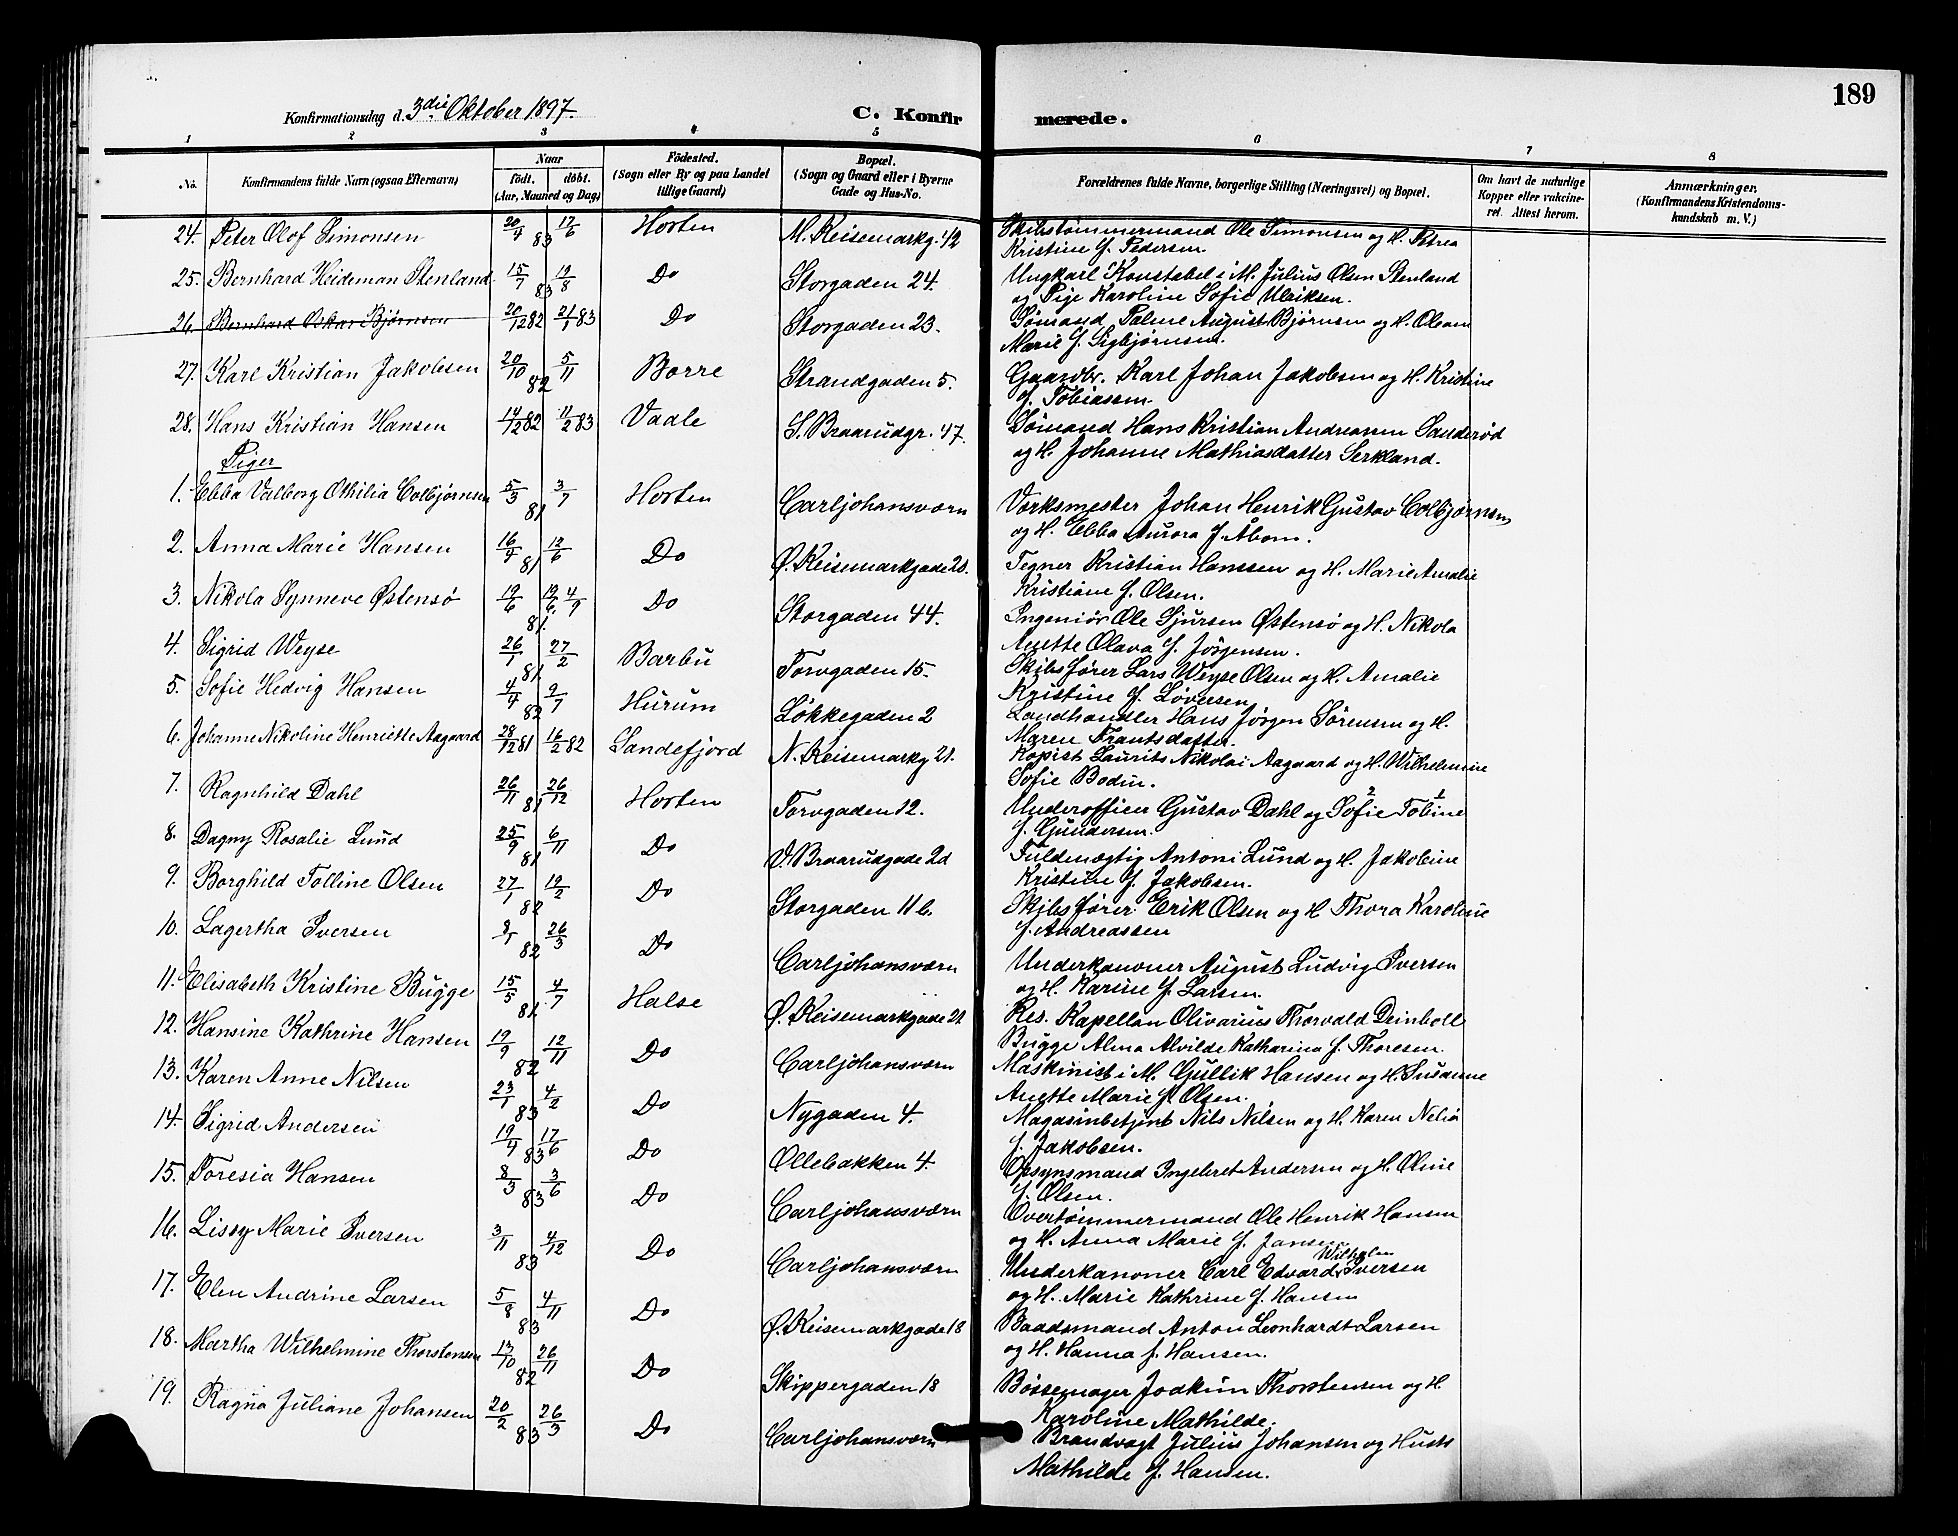 189
Konfirmationsdag d. 3die Oktober 1897.
C. Konfirmerede.
1 2 3 4 5 6 7 8
No. Konfirmandens fulde Navn (ogsaa Efternavn) Naar födt. döbt. (Aar, Maaned og Dag) Födested. (Sogn eller By og paa Landet tillige Gaard) Bopæl. (Sogn og Gaard eller i Byerne Gade og Hus-No. Forældrenes fulde Navne, borgerlige Stilling (Næringsvei) og Bopæl. Om havt de naturlige Kopper eller vaccineret. Attest herom. Anmærkninger. (Konfirmandens Kristendomskundskab m. V.)
24. Peter Olof Simonsen 20/4 83 17/6 Horten M. Keisemarkg. 42 Skibstømmermand Ole Simonsen og H. Petrea
Kristine f. Pedersen
25. Bernhard Heideman Stenland 15/7 83 19/8 Do Storgaden 24. Ungkarl Konstabel i M. Julius Olsen Stenland
og Pige Karoline Sofie Ulriksen.
26. Bernhard Oskar Bjørnsen 20/12 82 21/1 83 Do Storgaden 23. Sømand Palme August Bjørnsen og H. Oleam
Marie f. Sigbjørnsen.
27. Karl Kristian Jakobsen 20/10 82 5/11 Borre Strandgaden 5. Gaardbr. Karl Johan Jakobsen og H. Kristine
f. Tobiassen
28. Hans Kristian Hansen 14/12 82 11/2 83 Vaale S. Braarudgr. 47. Sømand Hans Kristian Andreassen Sanderød
og H. Johanne Mathiasdatter Serkland.
Piger
1. Ebba Valborg Othilia Colbjørnsen 5/3 81 3/7 Horten Carljohansværn Værksmester Johan Henrik Gustav Colbjørnsen
og H. Ebba Aurora f. Åbom.
2. Anna Marie Hansen 16/4 81 12/6 Do Ø. Keisemarkgade 20. Tegner Kristian Hanssen og H. Marie Amalie
Kristiane f. Olsen.
3. Nikola Synneve Østensø 19/6 81. 19/6. 4/9 Do Storgaden 44. Ingeniör Ole Sjursen Østensø og H. Nikola
Anette Olava f. Jörgensen.
4. Sigrid Weyse 26/1 81 27/2 Barbu Torvgaden 15. Skibsfører Lars Weyse Olsen og H. Amalie
Kristine f. Løversen
5. Sofie Hedvig Hansen 4/4 82 9/7 Hurum Løkkegaden 2 Landhandler Hans Jørgen Sørensen og H.
Maren Frantsdatter.
6. Johanne Nikoline Henriette Aagaard 28/12 81 16/2 82 Sandefjord N. Keisemarkg 21. Kopist Laurits Nikolai Aagaard og H. Wilhelmine
Sofie Bodin.
7. Ragnhild Dahl 26/11 81 26/12 Horten Torvgaden 12. Underofficer Gustav Dahl og Sofie 2 Tobine 1
f. Gundersen.
8. Dagny Rosalie Lund 25/9 81 6/11 Do V. Braarudgade 2d Fuldmægtig Antoni Lund og H. Jakobine
Kristine f. Jakobsen.
9. Borghild Tolline Olsen 27/1 82 19/2 Do Storgaden 11 b. Skibsfører Erik Olsen og H Thora Karoline
f. Andreassen
10. Lagertha Iversen 9/1 82 26/3 Do Carljohansværn Underkanoner August Ludvig Iversen
og H. Karine f. Larsen.
11. Elisabeth Kristine Bugge 15/5 81. 4/7 Halse Ø. Keisemarkgade 21 Res. Kapellan Olivarius Thorvald Deinboll
Bugge Alma Alvilde Katharina f. Thoresen.
12. Hansine Kathrine Hansen 19/9 82 12/11 Do Carljohansværn Maskinist i M. Gullik Hansen og H. Susanne
Anette Marie f. Olsen.
13. Karen Anne Nilsen 23/1 83 4/2 Do Nygaden 4. Magasinbetjent Nils Nilsen og H. Karen Nelia
f. Jakobsen.
14. Sigrid Andersen 19/4 83 17/6 Do Ollebakken 4. Opsynsmand Ingebret Andersen og H. Oline
f. Olsen.
15. Toresia Hansen 8/3 83 3/6 Do Carljohansværn Overtømmermand Ole Henrik Hansen
og H. Anna Marie f. Jansen
16. Lissy Marie Iversen 3/11 83 4/12 Do Carljohansværn Underkanoner Carl Edvard Wilhelm Iversen
og H. Marie Kathrine f. Hansen
17. Elen Andrine Larsen 5/8 83 4/11 Do Ø. Keisemarkgade 18 Baadsmand Anton Leonhardt Larsen
og H. Hanna f. Hansen.
18. Martha Wilhelmine Thorstensen 13/10 82 26/11 Do Skippergaden 18 Bøssemager Joakim Thorstensen og H.
Karoline Mathilde.
19. Ragna Juliane Johansen 20/2 83 26/3 Do Carljohansværn Brandvagt Julius Johansen og Hust.
Mathilde f. Hansen.